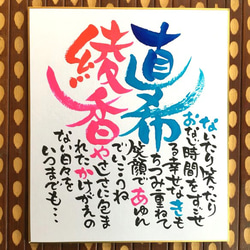 直希
綾香
ないたり笑ったり
おなじ時間をすごせ
る幸せなきも
ちつみ重ねて
笑顔であゆん
でいこうね
やさしさに包ま
れたかけがえの
ない日々を
いつまでも…